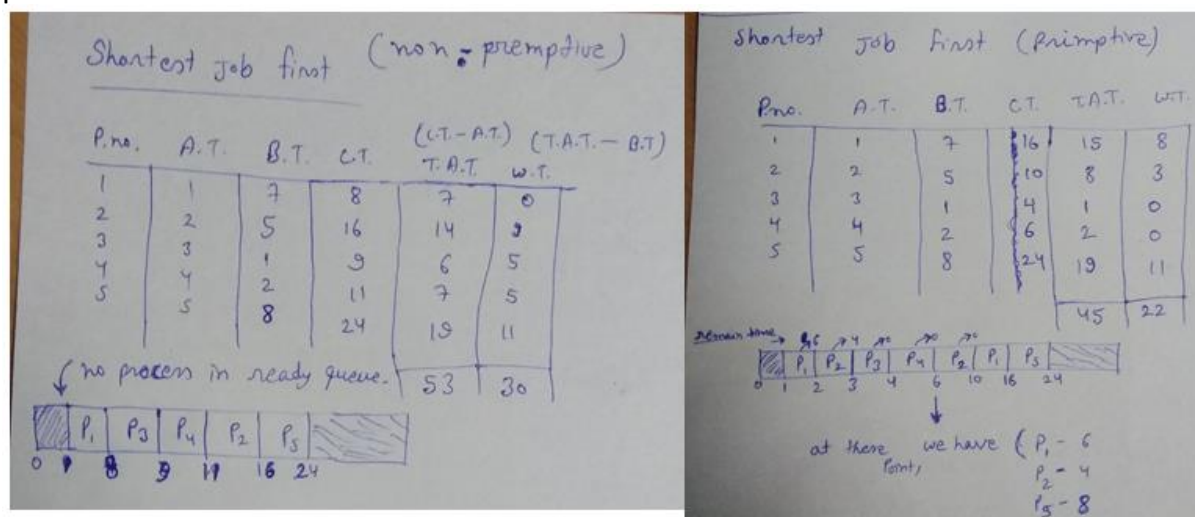 Shortest Job first (non-premptive)
P.no. A.T. B.T. C.T. (C.T. - A.T.) T.A.T. (T.A.T. - B.T) W.T.
1 1 7 8 7 0
2 2 5 16 14 9
3 3 1 9 6 5
4 4 2 11 7 5
5 5 8 24 19 11
53 30
no process in ready queue.
P1 P3 P4 P2 P5
0 1 8 9 11 16 24
Shortest Job first (Primptive)
P.no. A.T. B.T. C.T. T.A.T. W.T.
1 1 7 16 15 8
2 2 5 10 8 3
3 3 1 4 1 0
4 4 2 6 2 0
5 5 8 24 19 11
45 22
Remain time → 6 4 0 0 0
P1 P2 P3 P4 P2 P1 P5
0 1 2 3 4 6 10 16 24
at there point, we have ( P1 - 6
P2 - 4
P5 - 8